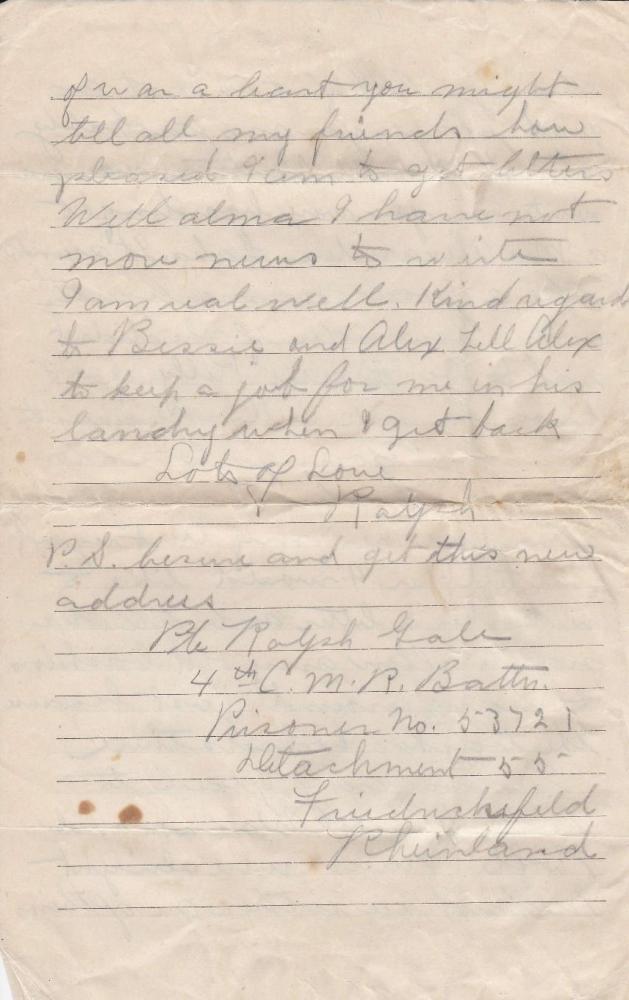 of war a heart you might
tell all my friends how
pleased I am to get letters
Well alma I have not
more news to write
I am real well. Kind regards
to Bessie and Alex Tell Alex
to keep a job for me in his
landry when I get back
Lots of Love
Ralph
P.S. besure and get this new
address
Pte Ralph Gale
4th C. M. R. Battn.
Prisoner No. 53721
Detachment 55
Friedrichsfeld
Rheinland